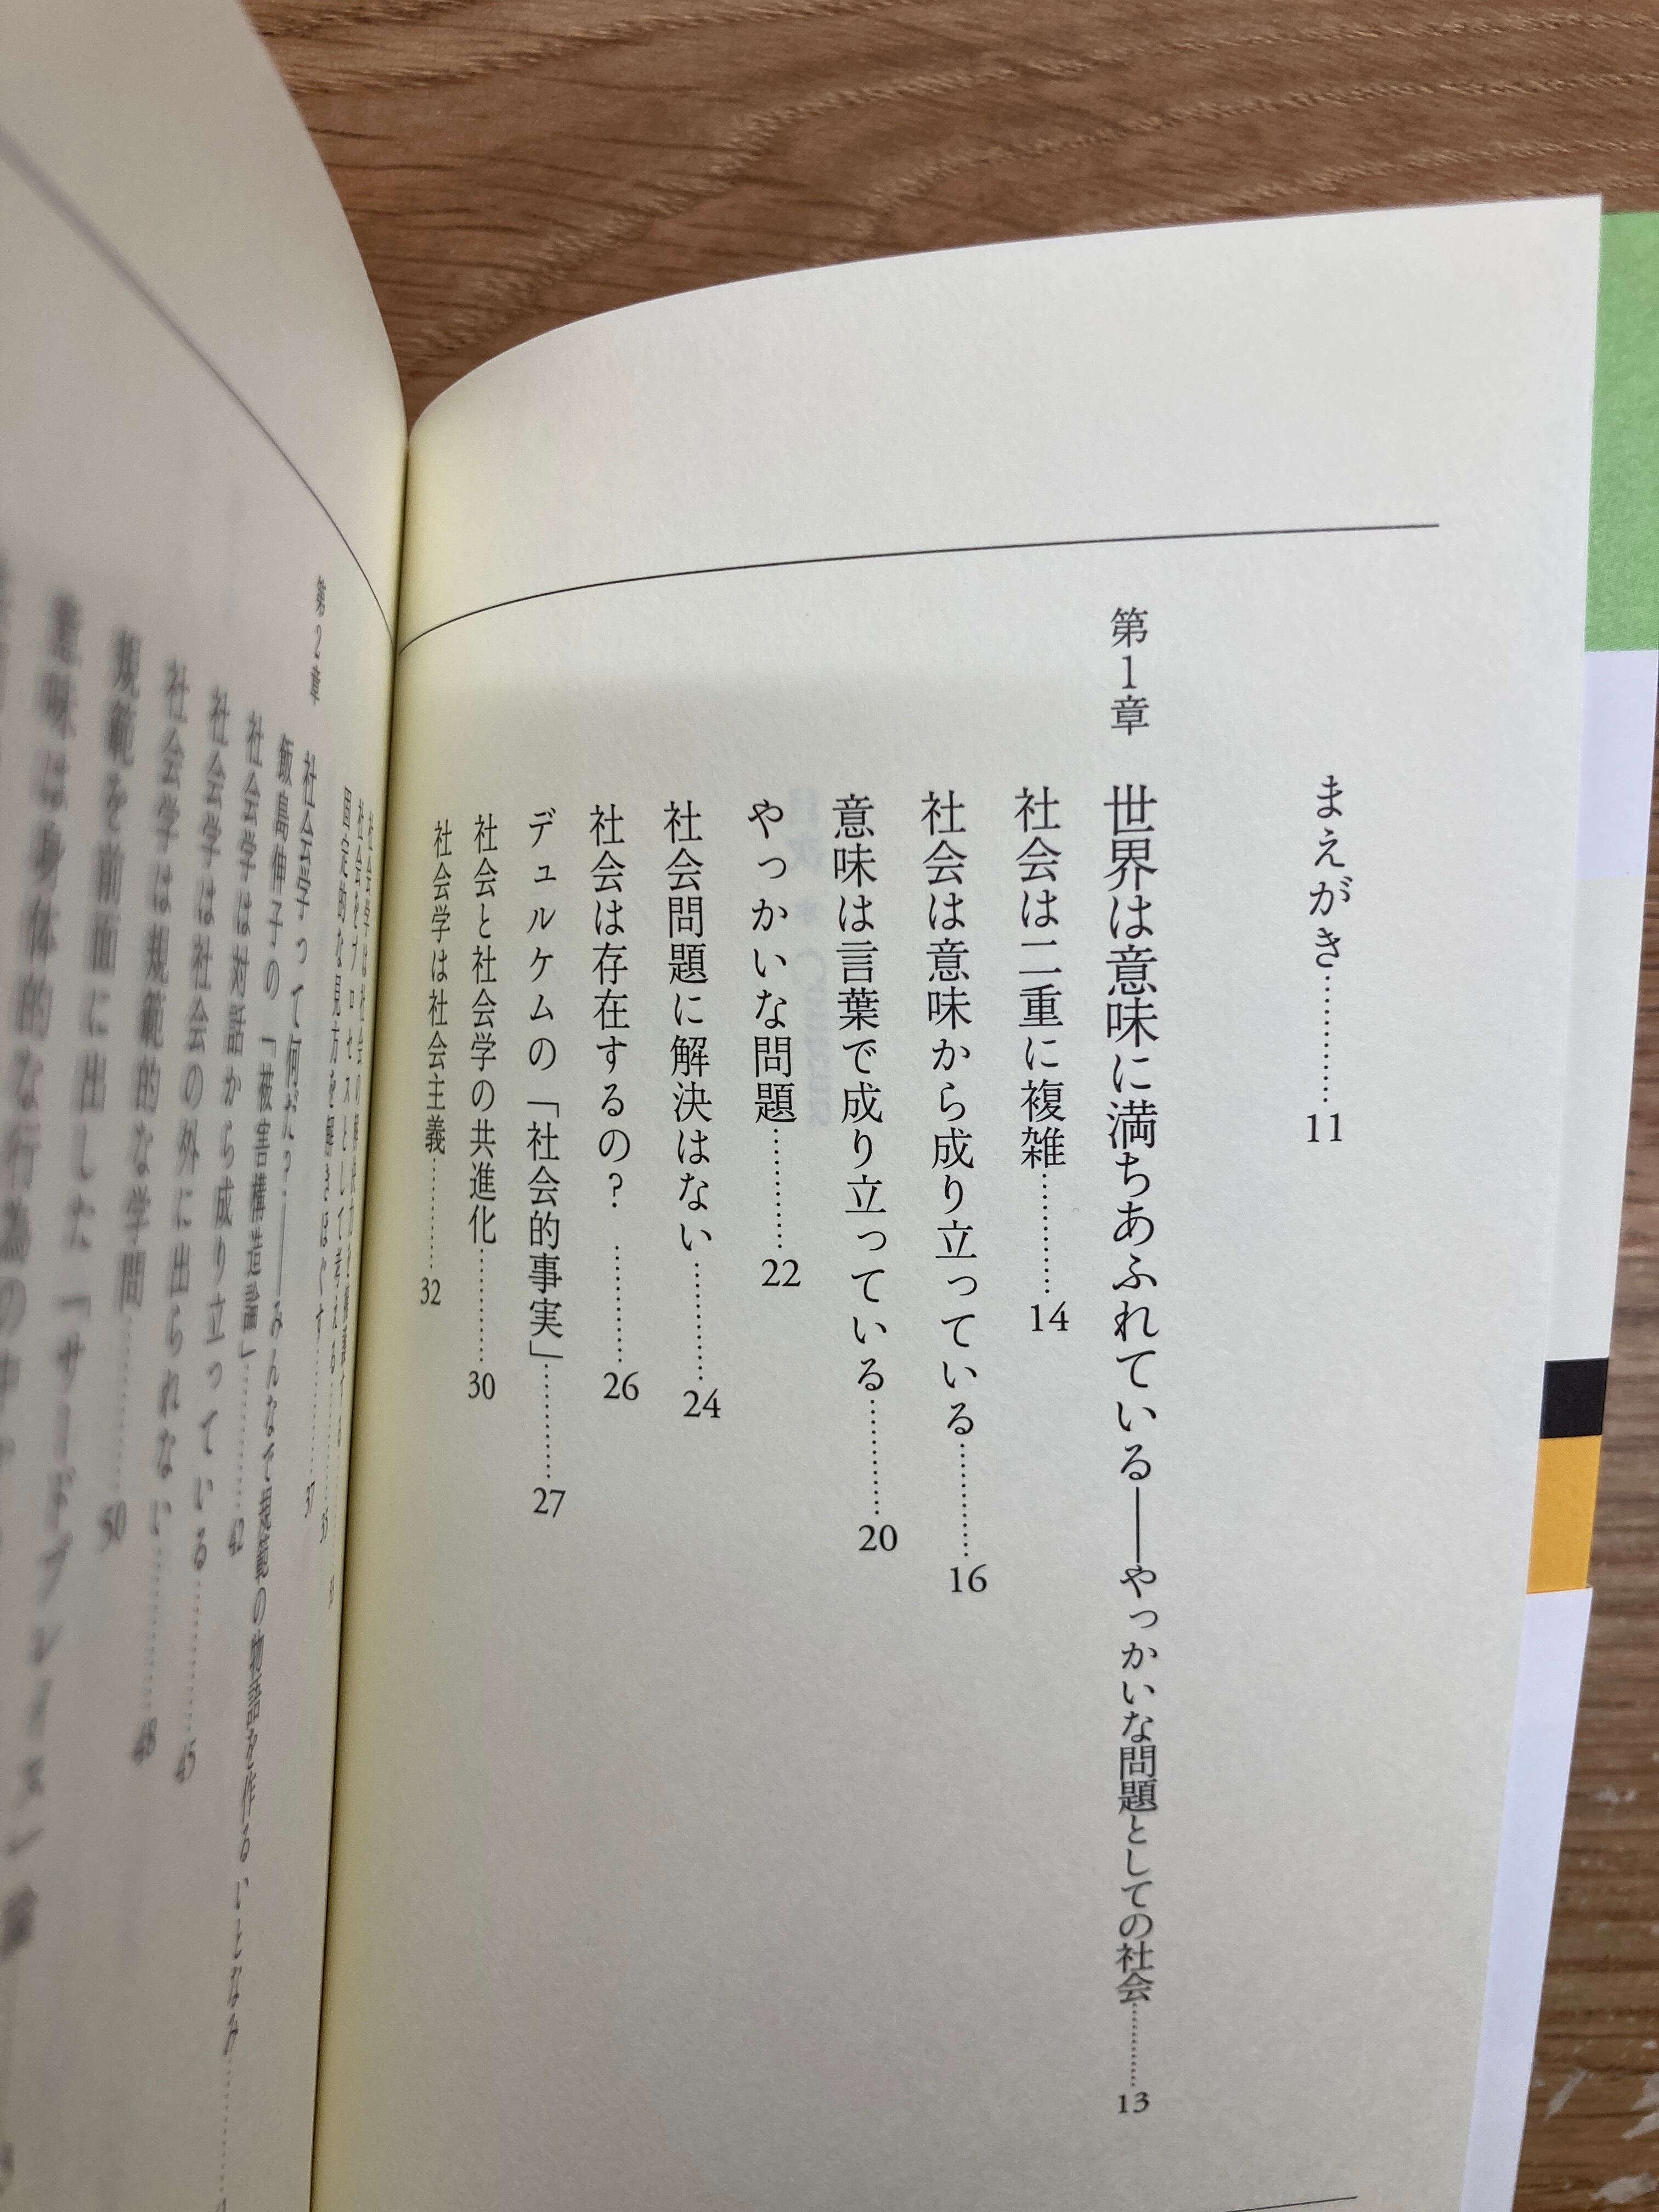 まえがき…………11
第1章　世界は意味に満ちあふれている――やっかいな問題としての社会…………13
社会は二重に複雑…………14
社会は意味から成り立っている…………16
意味は言葉で成り立っている…………20
やっかいな問題…………22
社会問題に解決はない…………24
社会は存在するの？…………26
デュルケムの「社会的事実」…………27
社会と社会学の共進化…………30
社会学は社会主義…………32
社会をプロセスとして考える
固定的な見方を解きほぐす…………37
第2章　社会学って何だ？――みんなで規範の物語を作るいとなみ
飯島伸子の「被害構造論」…………42
社会学は対話から成り立っている…………45
社会学は社会の外に出られない…………48
社会学は規範的な学問…………50
規範を前面に出した「サードプレイス」論
意味は身体的な行為の中